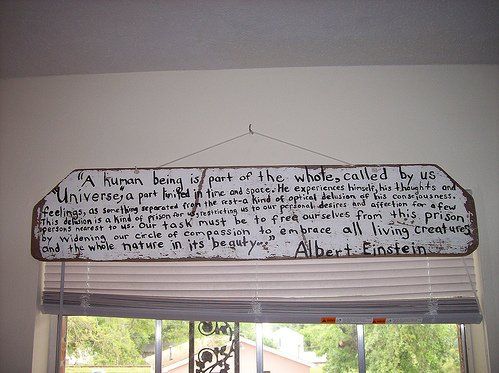 "A human being is part of the whole, called by us
"Universe," a part limited in time and space. He experiences himself, his thoughts and
feelings, as something separated from the rest-a kind of optical delusion of his consciousness.
This delusion is a kind of prison for us, restricting us to our personal desires and affection for a few
persons nearest to us. Our task must be to free ourselves from this prison
by widening our circle of compassion to embrace all living creatures
and the whole nature in its beauty..."
Albert Einstein